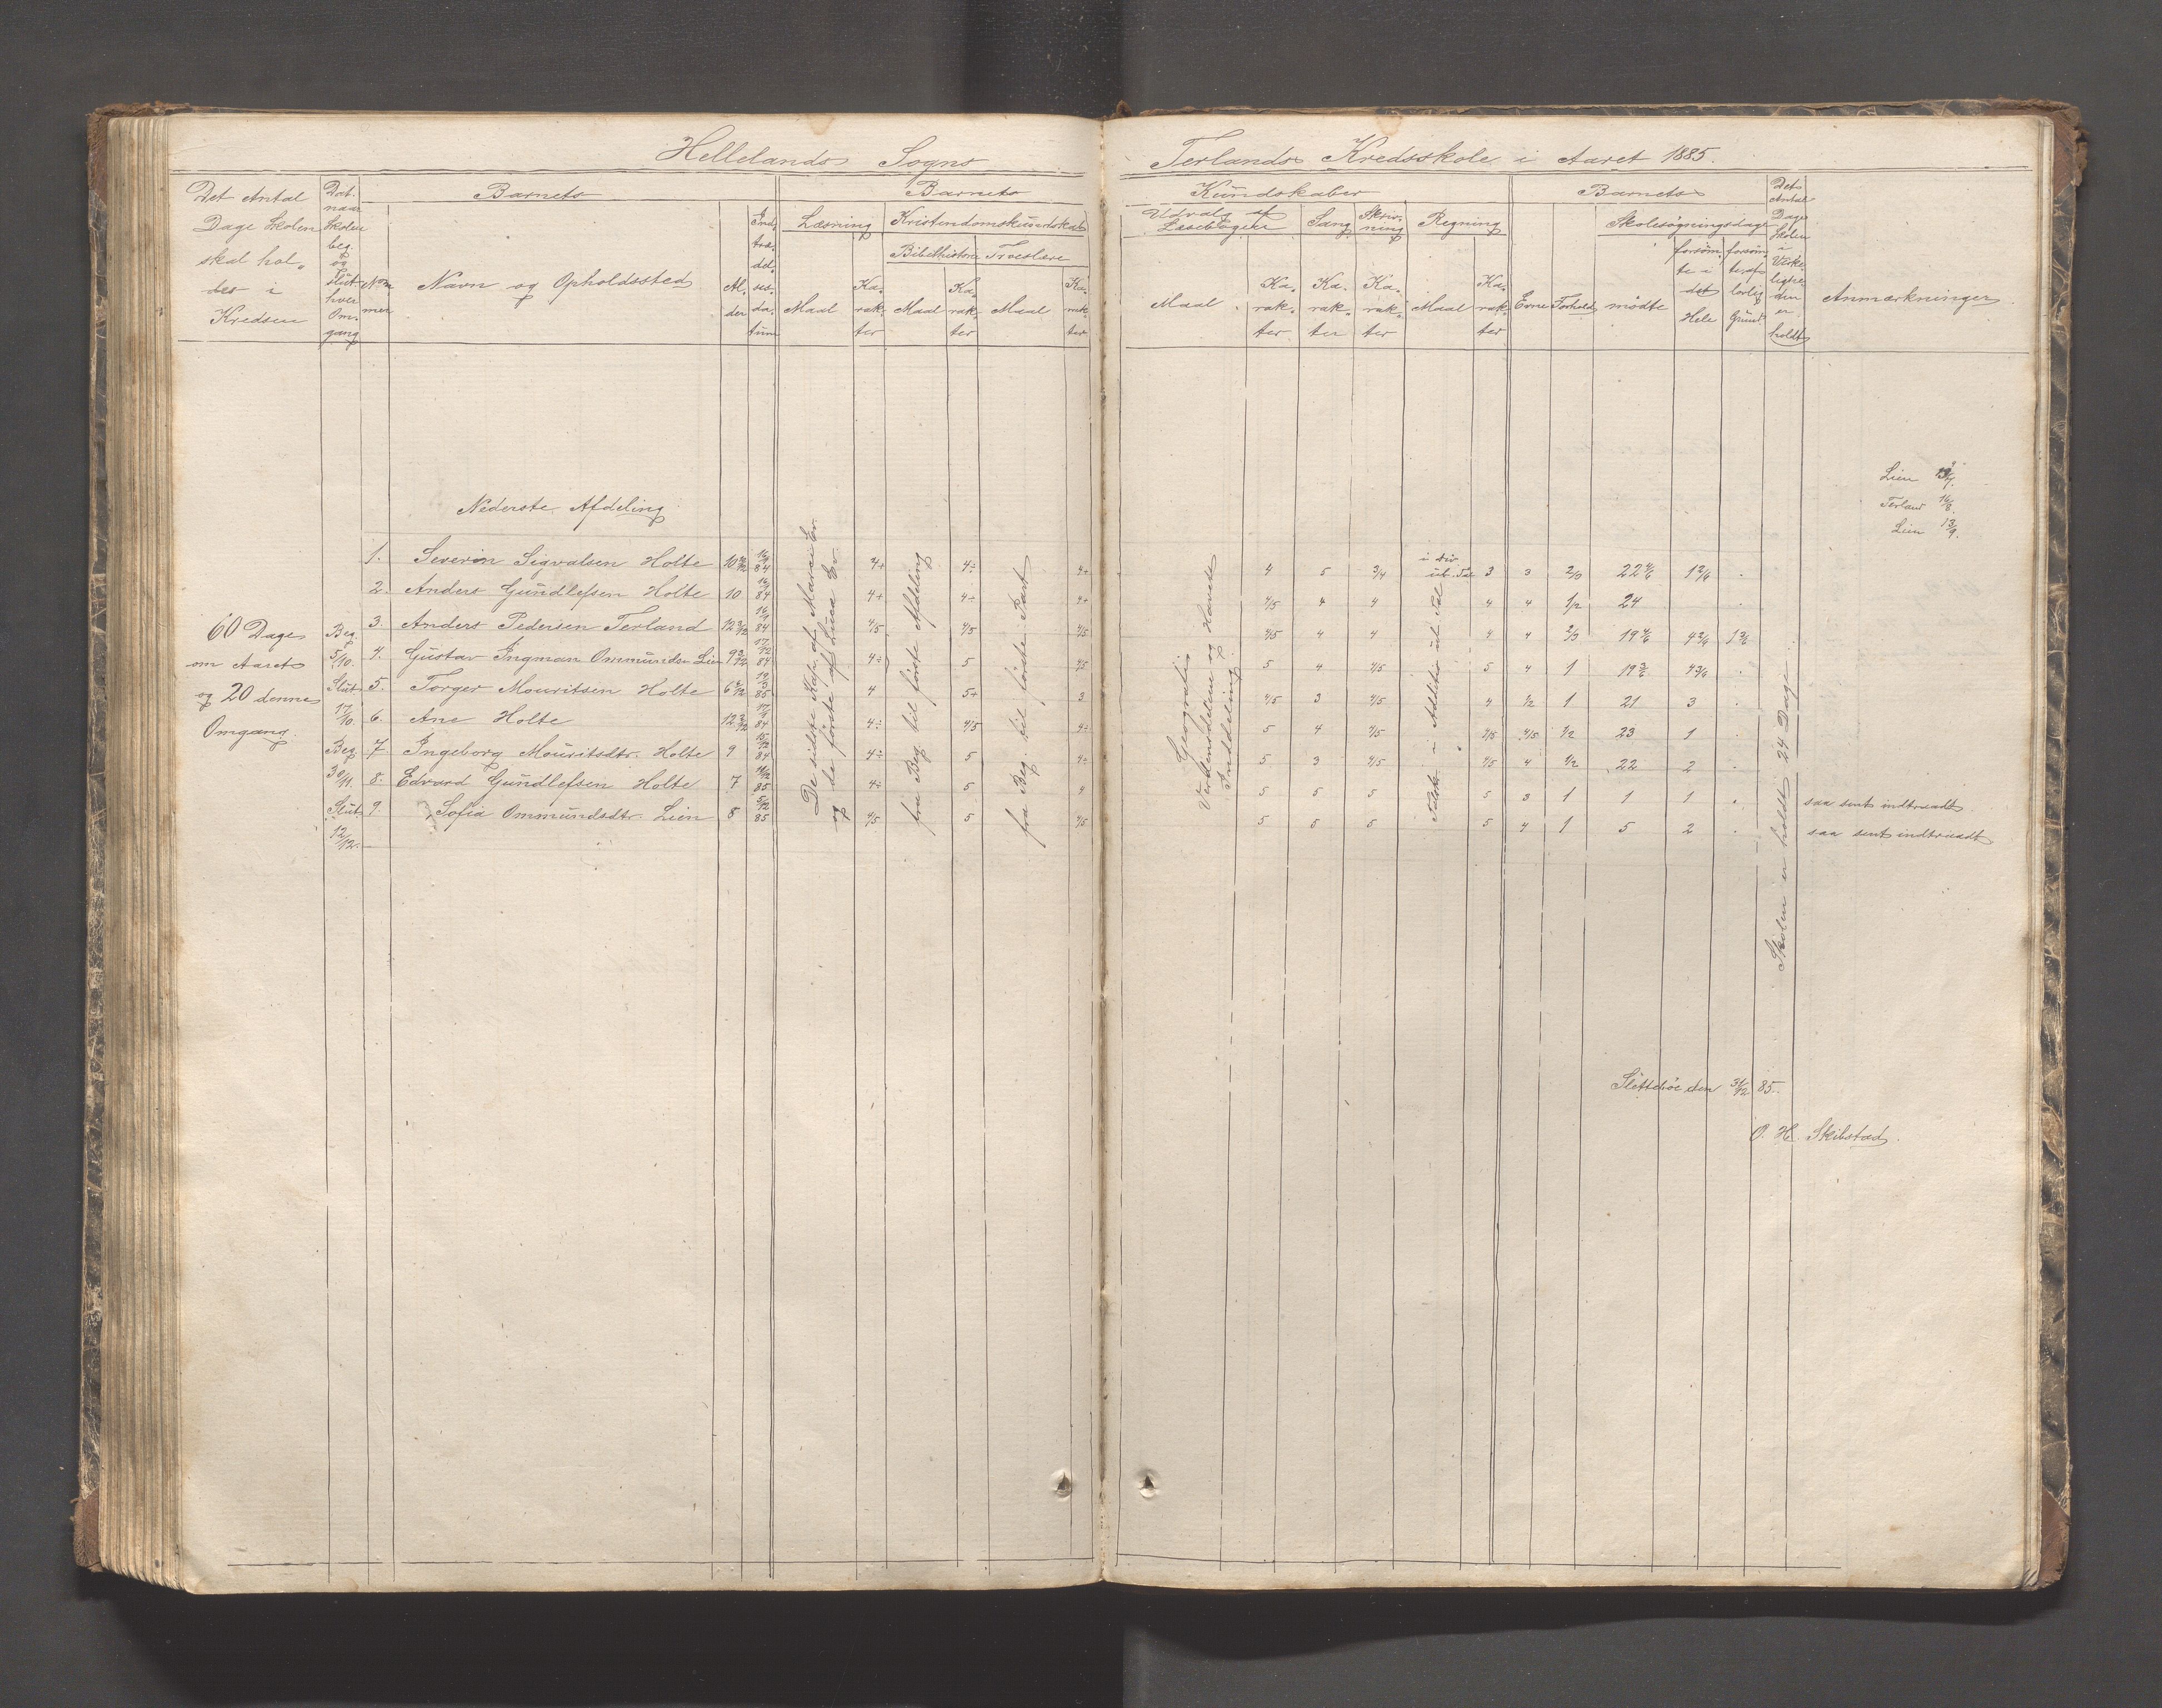 Hellelands Sogns
Terlands Kredsskole i Aaret 1885.
Det Antal Dage Skolen skal holdes i Kredsen
Dat. naar Skolen beg. og Slut. hver Omgang
Barnets
Nommer
Navn og Opholdssted
Alder
Indtrædelsesdatum
Barnets
Læsning
Kristendomskundskab
Bibelhistorie
Troeslære
Maal
Karakter
Maal
Karakter
Maal
Karakter
Kundskaber
Udvalg af Læsebogen
Sang
Skrivning
Regning
Maal
Karakter
Karakter
Karakter
Maal
Karakter
Barnets
Evne
Forhold
Skolesøgningsdage
mødte
forsømte i det Hele
forsømte af lovlig Grund
Det Antal Dage Skolen i Virkeligheden er holdt
Anmærkninger
Lien
Terland 16/8.
Lien 13/9.
Nederste Afdeling
60 Dage
om Aaret
og 20 denne
Omgang.
Beg.
5/10.
Slut
17/10.
Beg
30/11.
Slut
12/12.
De sidste Kap. af Marci Ev.
og de første af Luca Ev.
fra Beg til første Afdeling
fra Beg. til første Part
Geografi
Verdensdelene og Havets
Inddeling.
i Div.
Skolen er holdt 24 Dage
1. Severin Sigvalsen Holte 10 16/9 84 4+ 4÷ 4+ 4 5 3/4 3 3 2/3 22 4/6 1 2/6
2. Anders Gundlefsen Holte 10 16/9 84 4+ 4÷ 4+ 4/5 4 4 4 4 1/2 24
3. Anders Pedersen Terland 12 16/9 84 4/5 4/5 4/5 4/5 4 4 4 4 2/3 19 4/6 4 2/6
4. Gustav Ingman Ommunds. Lien 9 17/12 84 4÷ 5 4/5 5 4 4/5 5 4 1 19
5. Torger Mouritsen Holte 6 85 4 5+ 3 4/5 3 4/5 4 1/2 1 21 3
6. Ane Holte 12 84 4÷ 4/5 4÷ 5 4 4/5 4/5 4/5 1/2 23 1
7 Ingeborg Mouritsdtr. Holte 9 15/12 84 4÷ 5 4÷ 5 3 4/5 4/5 4 1/2 22 2
8. Edvard Gundlefsen Holte 7 11/12 85 4÷ 5 4 5 5 5 5 3 1 1 1 saa sent indtraadt
9. Sofia Ommundsdtr. Lien 8 5/12 85 4/5 5 4/5 5 5 5 5 4 1 5 2 saa sent indtraadt
Slettebøe den 31/12 85.
O. H. Skibstad.